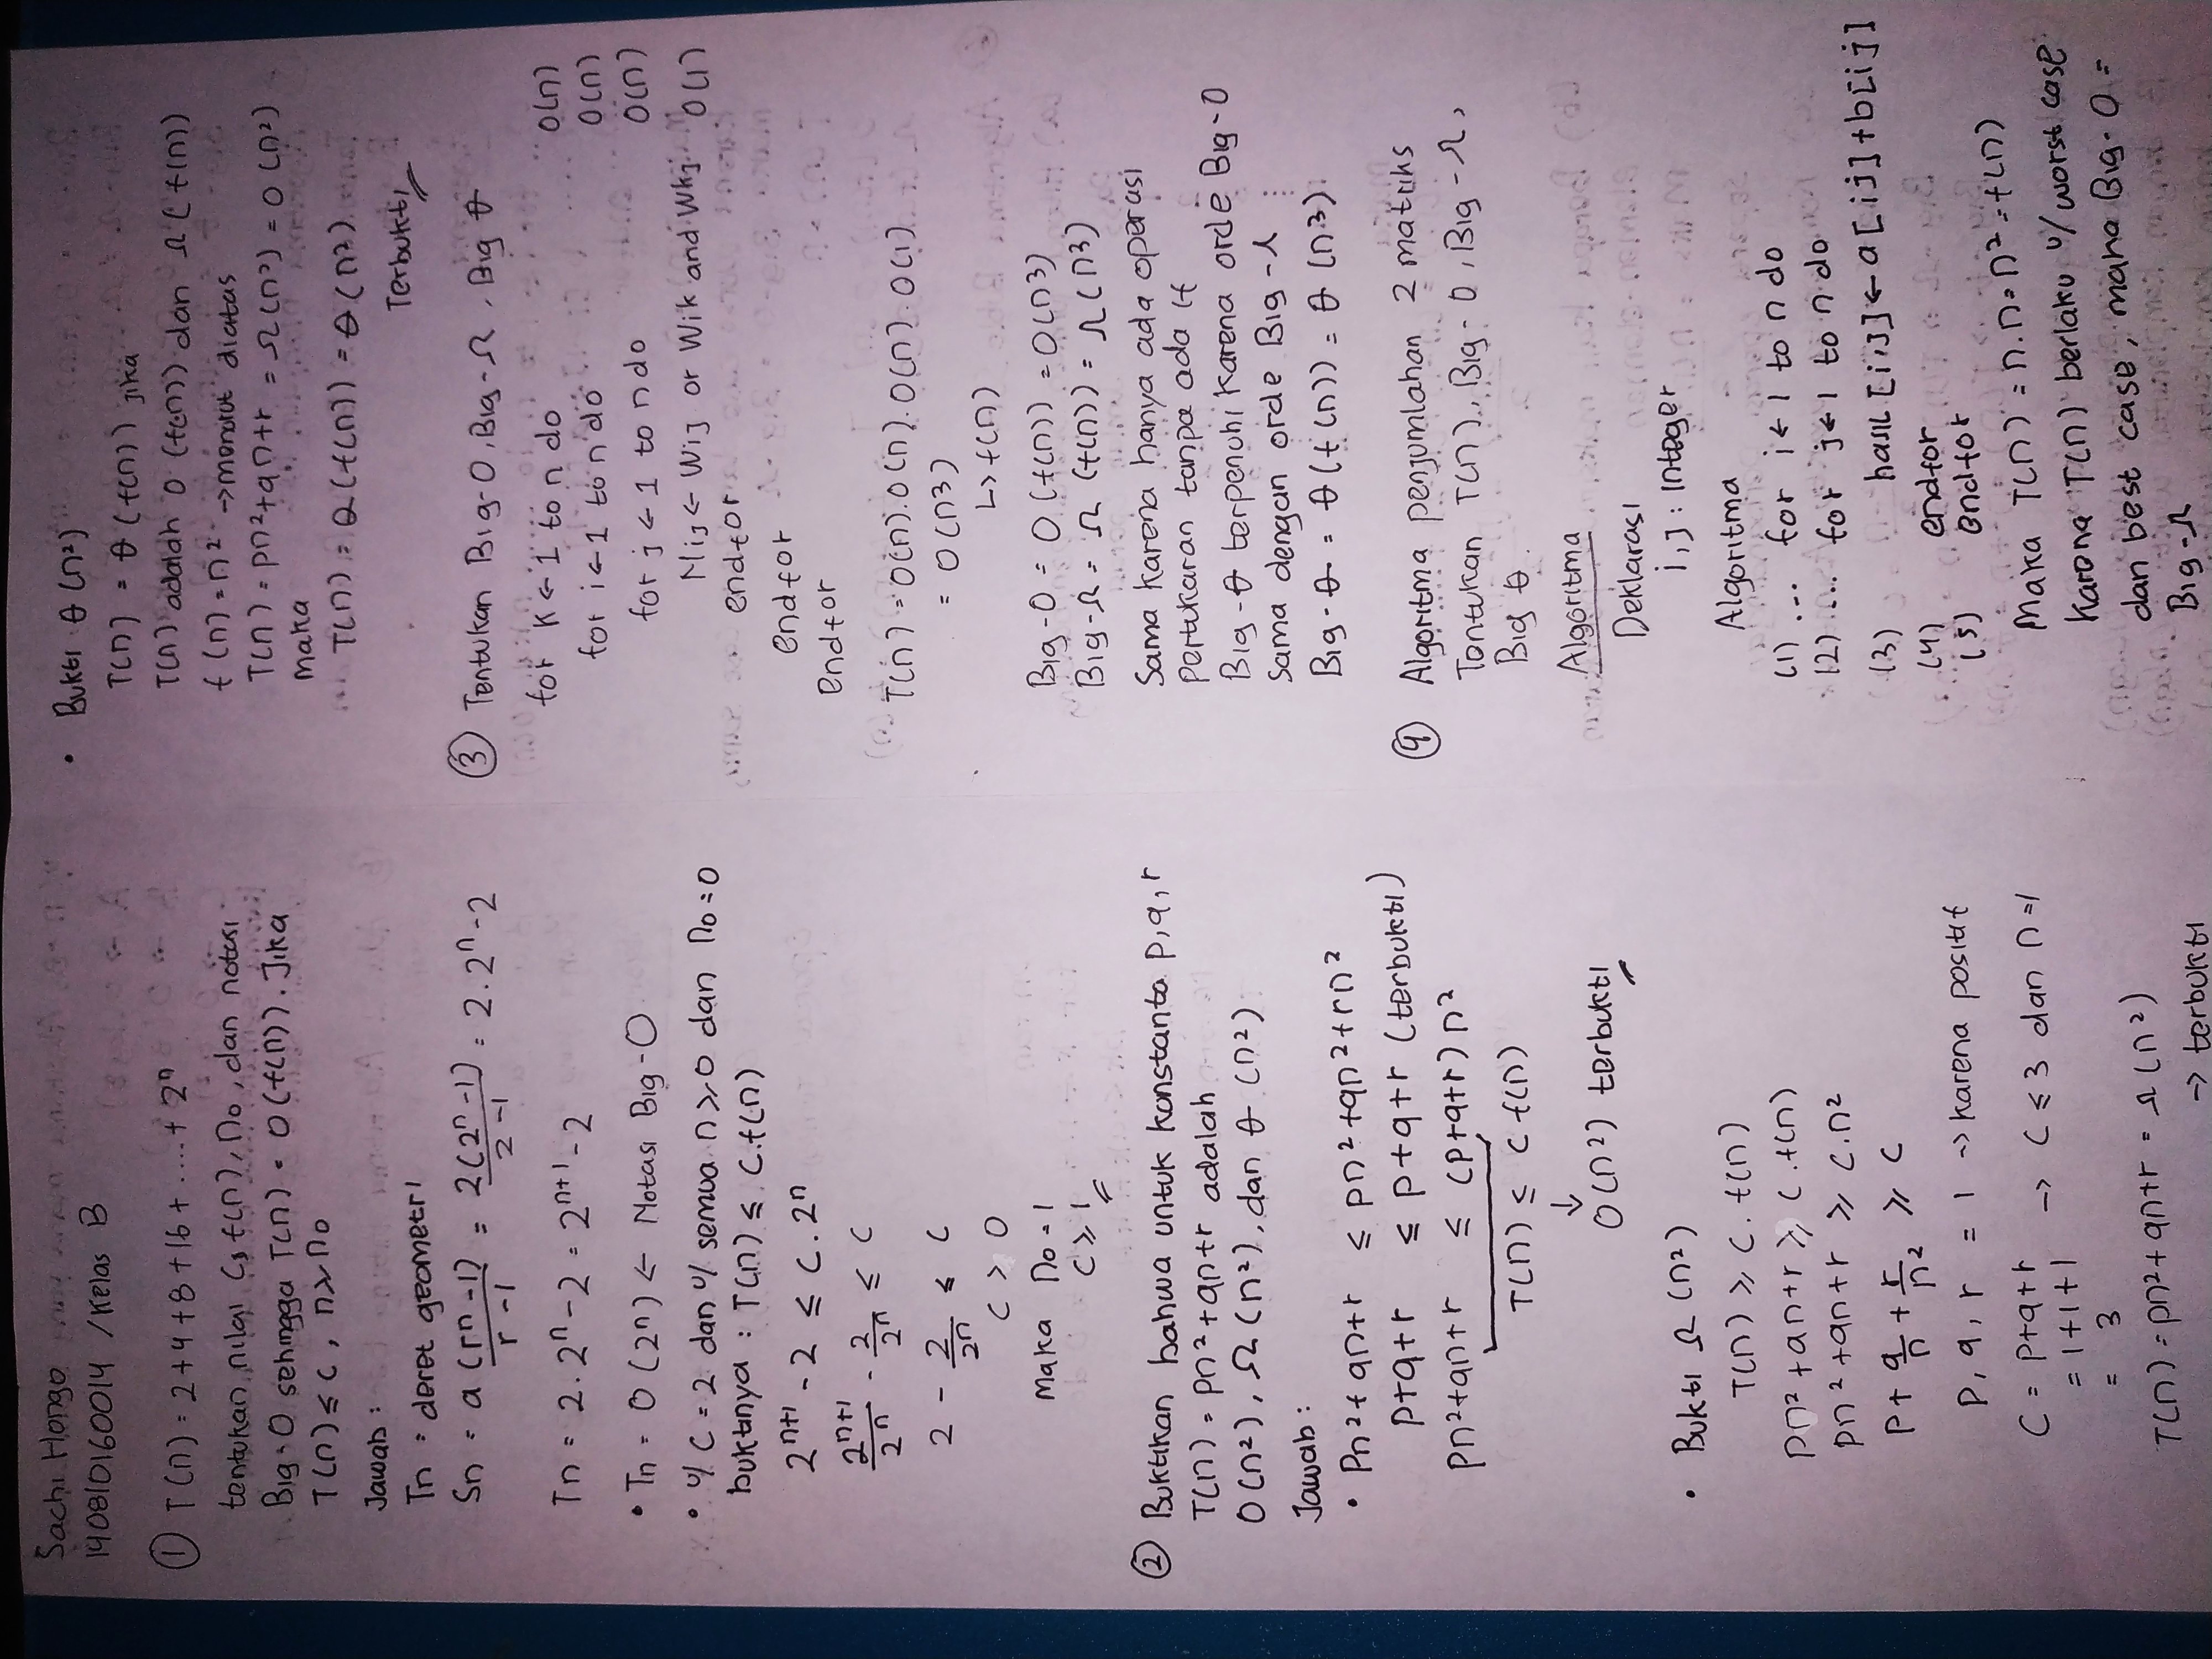 Sachi Hongo
140810160014 /Kelas B
① T(n) = 2+4+8+16+ .....+ 2ⁿ
tentukan nilai C, f(n), n₀, dan notasi
Big-O sehingga T(n) = O(f(n)). Jika
T(n) ≤ c, n ≥ n₀
Jawab :
Tn = deret geometri
Sn = a (rn - 1) / r - 1 = 2(2ⁿ - 1) / 2 - 1 = 2.2ⁿ - 2
Tn = 2.2ⁿ - 2 = 2ⁿ⁺¹ - 2
• Tn = O (2ⁿ) ← Notasi Big-O
• u/ C = 2 dan u/ semua n ≥ 0 dan n₀ = 0
buktinya : T(n) ≤ C.f(n)
2ⁿ⁺¹ - 2 ≤ C. 2ⁿ
2ⁿ⁺¹/2ⁿ - 2/2ⁿ ≤ C
2 - 2/2ⁿ ≤ C
C > 0
Maka n₀ = 1
C ≥ 1
② Buktikan bahwa untuk konstanta p, q, r
T(n) = pn²+qn+r adalah
O(n²), Ω(n²), dan θ (n²)
Jawab :
• Pn²+qn+r ≤ pn²+qn²+rn²
p+q+r ≤ p+q+r (terbukti)
pn²+qn+r ≤ (p+q+r) n²
T(n) ≤ C f(n)
↓
O(n²) terbukti
• Bukti Ω (n²)
T(n) ≥ C. f(n)
pn²+qn+r ≥ C.f(n)
pn²+qn+r ≥ C.n²
P+ q/n + r/n² ≥ C
P, q, r = 1 -> karena positif
C = p+q+r -> C ≤ 3 dan n=1
= 1+1+1
= 3
T(n) = pn²+qn+r = Ω(n²)
-> terbukti
• Bukti θ (n²)
T(n) = θ (f(n)) jika
T(n) adalah O (f(n)) dan Ω (f(n))
f(n) = n² -> menurut diatas
T(n) = pn²+qn+r = Ω(n²) = O (n²)
maka
T(n) = θ (f(n)) = θ (n²)
Terbukti
③ Tentukan Big-O, Big-Ω, Big θ
for K ← 1 to n do O(n)
for i ← 1 to n do O(n)
for j ← 1 to n do O(n)
Mij ← Wij or Wik and Wkj O(1)
endfor
endfor
endfor
T(n) = O(n).O(n).O(n).O(1)
= O(n3)
↳ f(n)
Big-O = O (f(n)) = O(n3)
Big-Ω = Ω (f(n)) = Ω(n3)
Sama karena hanya ada operasi
pertukaran tanpa ada if
Big-θ terpenuhi karena orde Big-O
sama dengan orde Big-Ω
Big-θ = θ(f(n)) = θ (n3)
④ Algoritma penjumlahan 2 matriks
Tentukan T(n), Big-O, Big-Ω,
Big θ.
Algoritma
Deklarasi
i, j : integer
Algoritma
(1) ... for i ← 1 to n do
(2) ... for j ← 1 to n do
(3) hasil [i,j] ← a[ij]+b[ij]
(4) endfor
(5) endfor
Maka T(n) = n.n = n² = f(n)
Karena T(n) berlaku u/ worst case
dan best case, maka Big-O =
Big-Ω